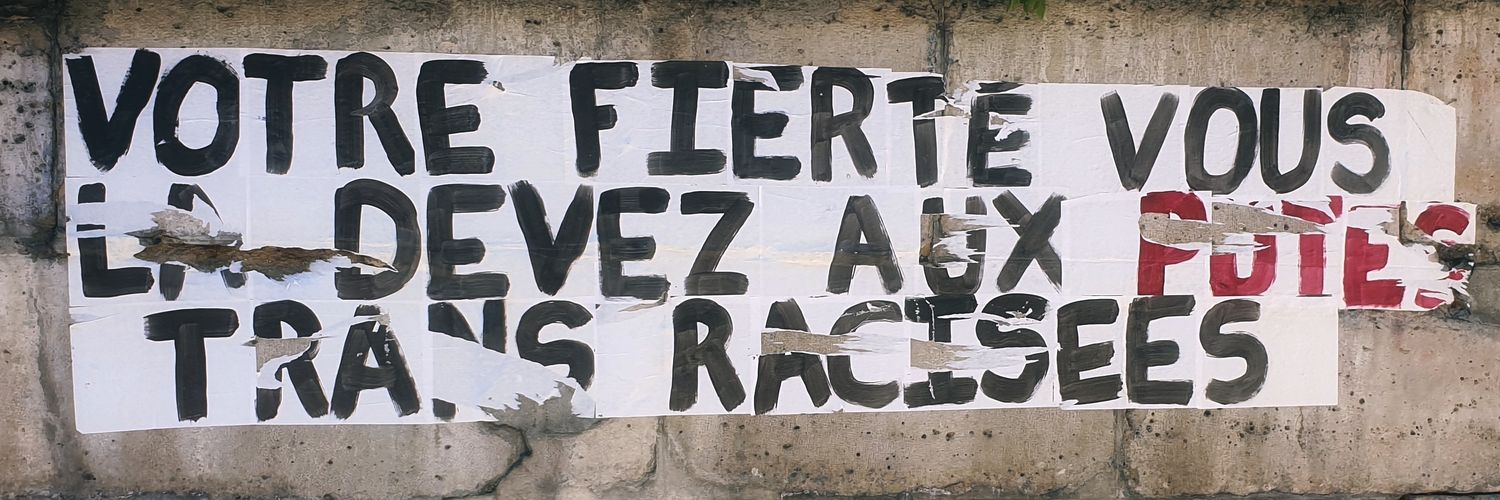 VOTRE FIERTE VOUS
LA DEVEZ AUX PUTES
TRANS RACISEES